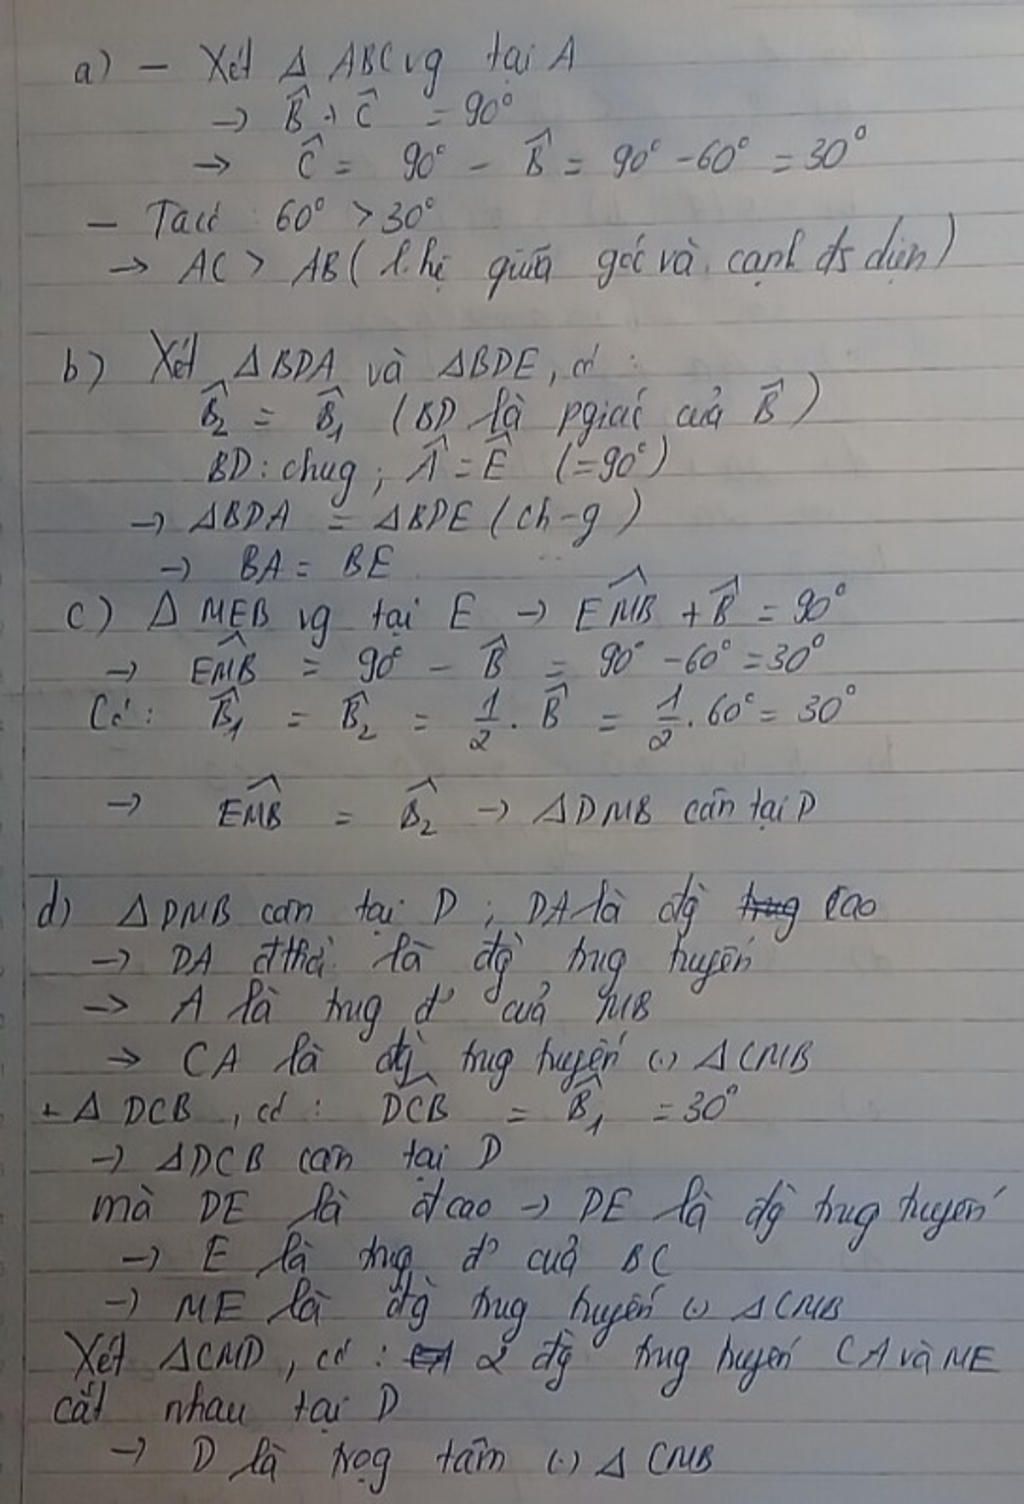 a) - Xét Δ ABC vg tại A
→ B̂ + Ĉ = 90°
→ Ĉ = 90° - B̂ = 90° - 60° = 30°
- Ta có 60° > 30°
→ AC > AB ( l.hệ giữa góc và cạnh đs diện)
b) Xét ΔBDA và ΔBDE, có :
B̂₂ = B̂₁ (BD là pgiác của B̂)
BD: chug ; Â = Ê (=90°)
→ ΔBDA = ΔBDE (ch-g)
→ BA = BE
c) Δ MEB vg tại E → EMB̂ + B̂ = 90°
→ EMB̂ = 90° - B̂ = 90° - 60° = 30°
Có : B̂₁ = B̂₂ = 1/2 . B̂ = 1/2 . 60° = 30°
→ EMB̂ = B̂₂ → ΔDMB cân tại D
d) ΔDMB cân tại D ; DA là đg̀ cao
→ DA đthời là đg̀ trug tuyến
→ A là trug đ' của MB
→ CA là đg̀ trug tuyến (.) ΔCMB
+ Δ DCB , có : DCB̂ = B̂₁ = 30°
→ ΔDCB cân tại D
mà DE là đ cao → DE là đg̀ trug tuyến
→ E là trug đ' của BC
→ ME là đg̀ trug tuyến (.) ΔCMB
Xét ΔCMD , có : 2 đg̀ trug tuyến CA và ME
cắt nhau tại D
→ D là trọg tâm (.) Δ CMB